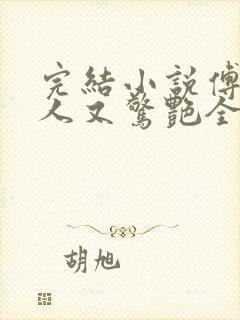 完結小說傅
人又驚艷全
胡旭